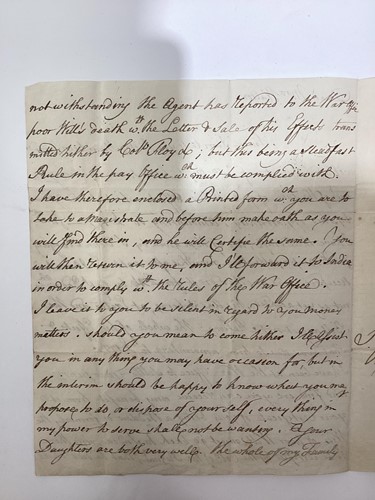 notwithstanding the Agent has reported to the War Offi
poor Will's death wth. the Letter & Sale of his Effects trans
mitted hither by Colo. Floyd; but this being a Steadfast
Rule in the pay Office wch. must be complied with.
I have therefore enclosed a Printed form wch. you are to
take to a Magistrate and before him make oath as you
will find there in, and he will Certifie the same. You
will then return it to me, and I'll forward it to India
in order to comply wth. the rules of the War Office.
I leave it to you to be silent in regard to you money
matters. should you mean to come hither I'll assist
you in any thing you may have occasion for, but in
the interim should be happy to know what you may
propose to do, or dispose of yourself, every thing in
my power to serve shall not be wanting.
Daughters are both very well. the whole of my Family